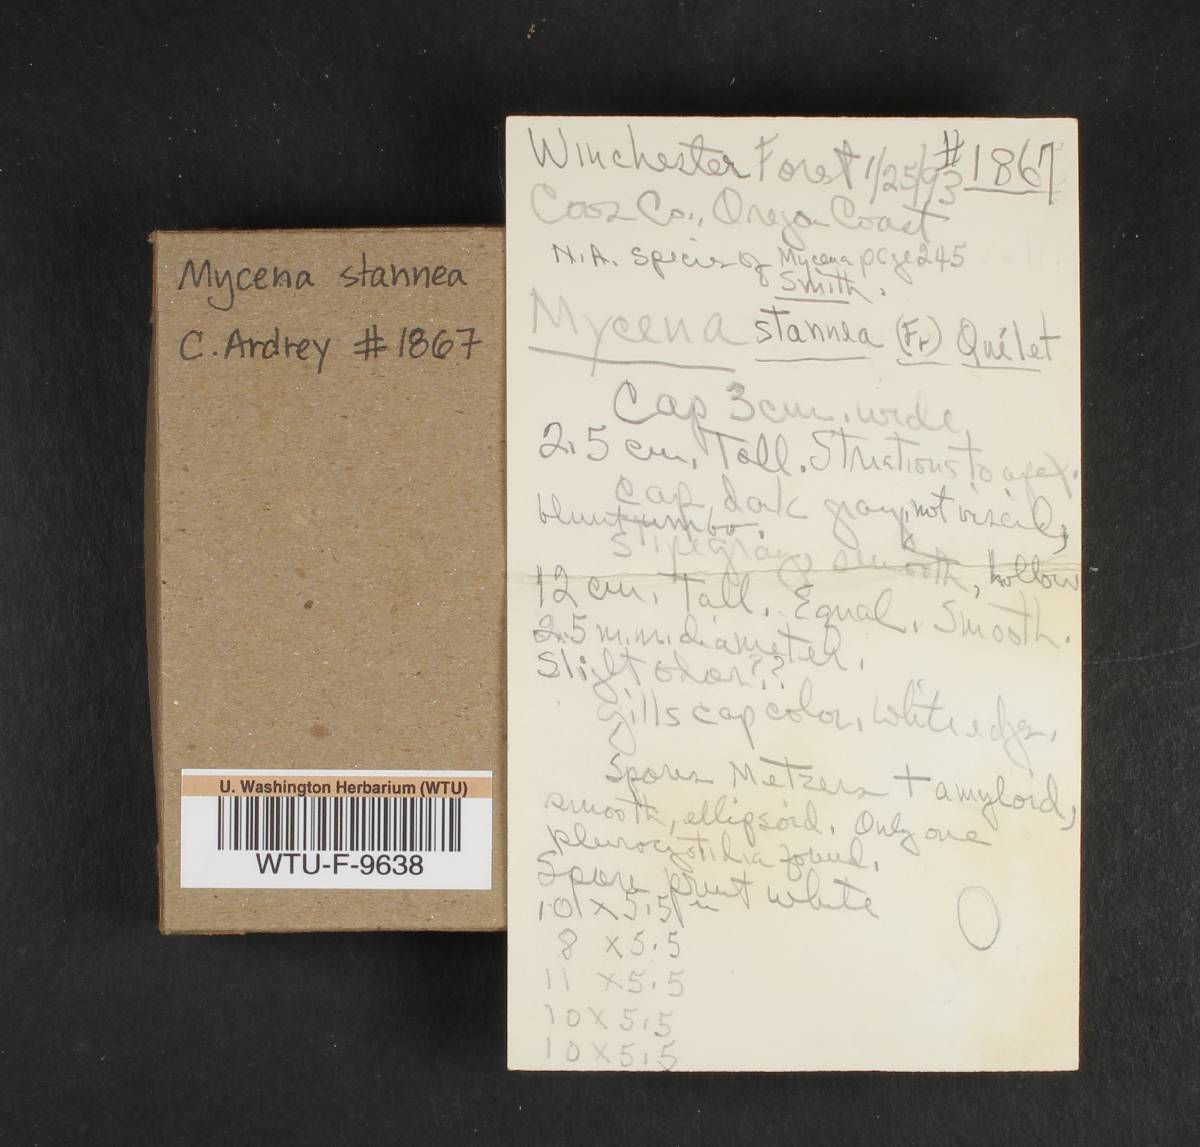 Mycena stannea
C. Ardrey #1867
U. Washington Herbarium (WTU)
WTU-F-9638
Winchester Forest 1/25/93 #1867
Coos Co., Oregon Coast
N.A. Species of Mycena page 245
Smith.
Mycena stannea (Fr) Quélet
Cap 3 cm. wide,
2.5 cm. Tall. Striations to apex.
Cap dark gray, not viscid,
blunt umbo.
Stipe gray, smooth, hollow
12 cm. Tall. Equal. Smooth.
2.5 m.m. diameter.
Slight odor??
Gills cap color, white edges.
Spores Metzers + amyloid,
smooth, ellipsoid. Only one
pleurocystidia found.
Spore print white
10 x 5.5 µ
8 x 5.5
11 x 5.5
10 x 5.5
10 x 5.5